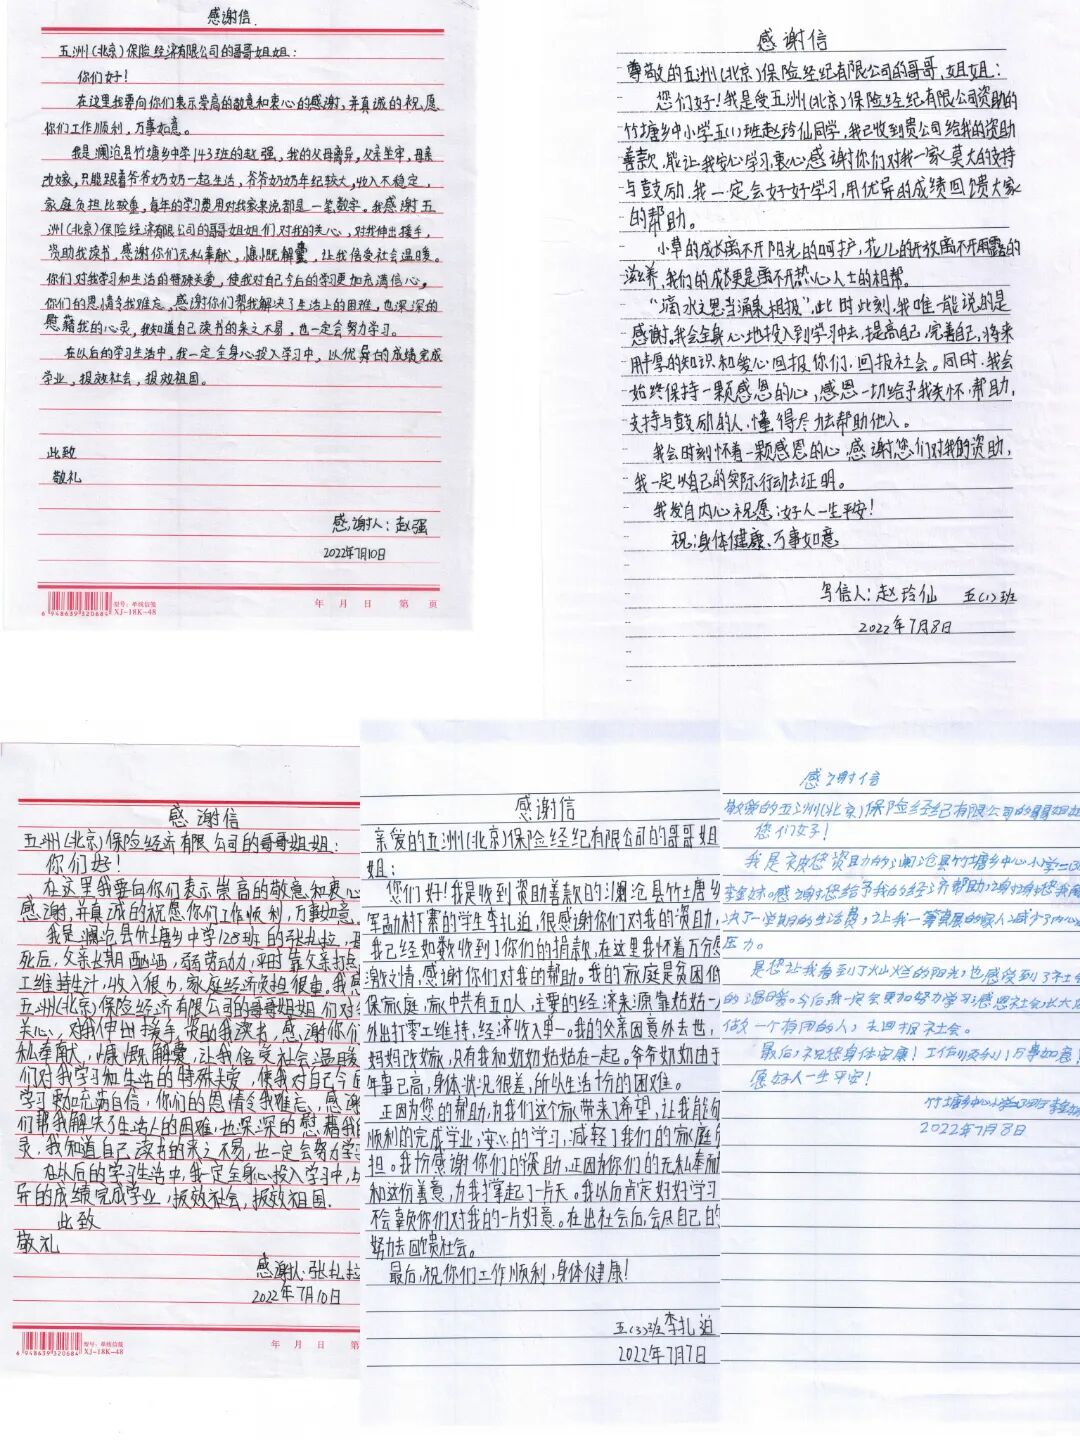 感谢信.
五洲(北京)保险经济有限公司的哥哥姐姐:
你们好!
在这里我要向你们表示崇高的敬意和衷心的感谢,并真诚的祝愿
你们工作顺利,万事如意。
我是澜沧县竹塘乡中学143班的赵强,我的父母离异,父亲坐牢,母亲
改嫁,只能跟着爷爷奶奶一起生活,爷爷奶奶年纪较大,收入不稳定,
家庭负担比较重,每年的学习费用对我家来说都是一笔数字。我感谢五
洲(北京)保险经济有限公司的哥哥姐姐们,对我的关心,对我伸出援手,
资助我读书,感谢你们无私奉献,慷慨解囊,让我倍受社会温暖。
你们对我学习和生活的特殊关爱,使我对自己今后的学习更加充满信心,
你们的恩情令我难忘。感谢你们帮我解决了生活上的困难,也深深的
慰藉我的心灵,我知道自己读书的来之不易,也一定会努力学习。
在以后的学习生活中,我一定全身心投入学习中,以优异的成绩完成
学业,报效社会,报效祖国。
此致
敬礼
感谢人:赵强
2022年7月10日
6 948639 320684
型号:单线信笺
XJ-18K-48
年 月 日 第 页
感谢信
尊敬的五洲(北京)保险经纪有限公司的哥哥,姐姐:
您们好!我是受五洲(北京)保险经纪有限公司资助的
竹塘乡中小学五(1)班赵玲仙同学,我已收到贵公司给我的资助
善款,能让我安心学习,衷心感谢你们对我一家莫大的支持
与鼓励,我一定会好好学习,用优异的成绩回馈大家
的帮助。
小草的成长离不开阳光的呵护,花儿的开放离不开雨露的
滋养,我们的成长更是离不开热心人士的相帮。
“滴水之恩当涌泉相报”,此时此刻,我唯一能说的是
感谢,我会全身心地投入到学习中去,提高自己,完善自己,将来
用丰厚的知识和爱心回报你们,回报社会。同时,我会
始终保持一颗感恩的心,感恩一切给予我关怀,帮助,
支持与鼓励的人,懂得尽力去帮助他人。
我会时刻怀着一颗感恩的心,感谢您们对我的资助,
我一定以自己的实际行动去证明。
我发自内心祝愿:好人一生平安!
祝:身体健康、万事如意
写信人:赵玲仙 五(1)班
2022年7月8日
感谢信
五洲(北京)保险经济有限公司的哥哥姐姐:
你们好!
在这里我要向你们表示崇高的敬意和衷心
感谢,并真诚的祝愿你们工作顺利,万事如意.
我是澜沧县竹塘乡中学128班的张扎拉,
死后,父亲长期酗酒,弱劳动力,平时靠父亲打点
工维持生计,收入很少,家庭经济负担很重。我感
五洲(北京)保险经济有限公司的哥哥姐姐们对
关心,对我伸出援手,资助我读书,感谢你们
私奉献,慷慨解囊,让我倍受社会温暖
们对我学习和生活的特殊关爱,使我对自己今后
学习更加充满自信,你们的恩情令我难忘,感谢
们帮我解决了生活上的困难,也深深的慰藉我的
灵,我知道自己读书的来之不易,也一定会努力学
在以后的学习生活中,我一定全身心投入学习中,以
异的成绩完成学业,报效社会,报效祖国.
此致
敬礼
感谢人:张扎拉
2022年7月10日
6 948639 320684
型号:单线信笺
XJ-18K-48
年 月 日 第
感谢信
亲爱的五洲(北京)保险经纪有限公司的哥哥姐
姐:
您们好!我是收到资助善款的澜沧县竹塘乡
军勐村丁寨的学生李扎迫,很感谢你们对我的资助,
我已经如数收到了你们的捐款,在这里我怀着万分感
激之情,感谢你们对我的帮助。我的家庭是贫困低
保家庭,家中共有五口人,主要的经济来源靠姑姑一人
外出打零工维持,经济收入单一。我的父亲因意外去世,
妈妈改嫁,只有我和奶奶姑姑在一起。爷爷奶奶由于
年事已高,身体状况很差,所以生活十份的困难。
正因为您的帮助,为我们这个家带来了希望,让我能够
顺利的完成学业,安心的学习,减轻了我们的家庭负
担。我十份感谢你们的资助,正因为你们的无私奉献
和这份善意,为我撑起了一片天。我以后肯定好好学习
不会辜负你们对我的一片好意。在出社会后,会尽自己的
努力去回馈社会。
最后,祝你们工作顺利,身体健康!
五(3)班 李扎迫
2022年7月7日
感谢信
敬爱的五洲(北京)保险经纪有限公司的哥哥姐姐
您们好!
我是被您资助的澜沧县竹塘乡中心小学二(3)
李金妹,感谢您给予我的经济帮助,谢谢您我解
决了一学期的生活费,让我一筹莫展的家人减少了内心
压力。
是您让我看到了灿烂的阳光,也感受到了社会
的温暖。今后,我一定会更加努力学习,感恩社会,长大后
做一个有用的人,去回报社会。
最后,祝您身体安康!工作顺利!万事如意!
愿好人一生平安!
竹塘乡中心小学二(3)班李金妹
2022年7月8日